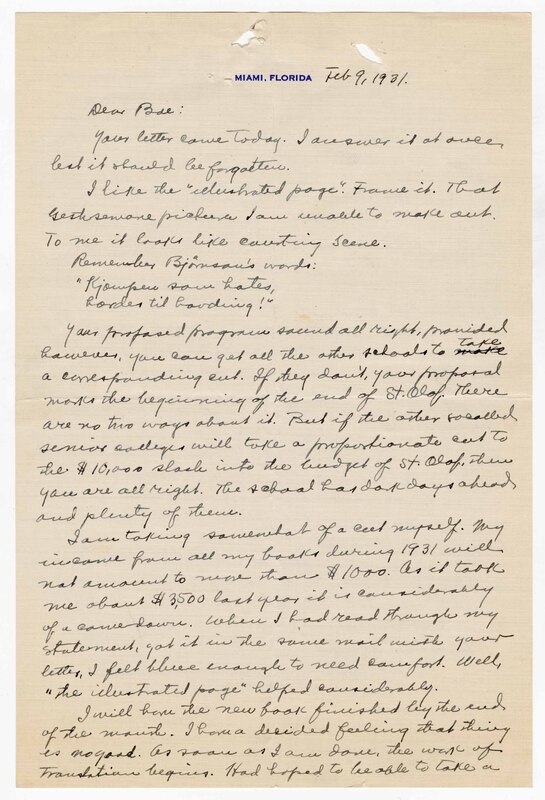 MIAMI, FLORIDA Feb 9, 1931.
Dear Boe:
Your letter came today. I answer it at once,
lest it should be forgotten.
I like the "illustrated page". Frame it. That
Gethsemane picture I am unable to make out.
To me it looks like courting scene.
Remember Bjørnson's words:
"Kjæmpen som hates,
hædes til høvding!"
Your proposed program sound all right, provided
however, you can get all the other schools to make take
a corresponding cut. If they don't, your proposal
marks the beginning of the end of St. Olaf. There
are no two ways about it. But if the other so called
senior colleges will take a proportionate cut to
the $10,000 slash into the budget of St. Olaf, then
you are all right. The school has dark days ahead
and plenty of them.
I am taking somewhat of a cut myself. My
income from all my books during 1931 will
not amount to more than $1000. As it took
me about $3,500 last year it is considerably
of a come down. When I had read through my
statement, got it in the same mail with your
letter, I felt blue enough to need comfort. Well,
"the illustrated page" helped considerably.
I will have the new book finished by the end
of the month. I have a decided feeling that thing
is no good. As soon as I am done, the work of
translation begins. Had hoped to be able to take a